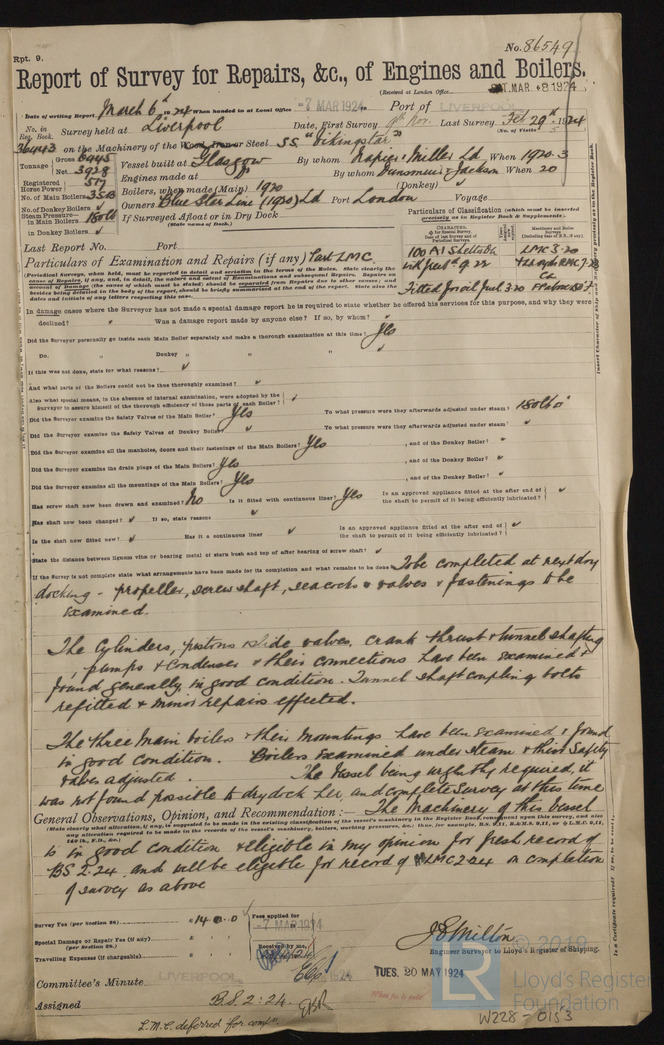 Rpt. 9.
No. 86549
Report of Survey for Repairs, &c., of Engines and Boilers.
(Received at London Office
SAT. MAR. 8 1924
Date of writing Report March 6th 1924 When handed in at Local Office -7 MAR 1924 Port of LIVERPOOL
No. in Reg. Book. Survey held at Liverpool Date, First Survey 9th Nov. Last Survey Feb 29th 1924
(No. of Visits 5
36443 on the Machinery of the Wood, Iron or Steel SS "Vikingstar"
Tonnage Gross 6445 Vessel built at Glasgow By whom Napier & Miller Ld When 1920.3
Net 3928
Engines made at By whom Dunsmuir & Jackson When 20
Registered Horse Power 517
Boilers, when made (Main) 1920 (Donkey)
No. of Main Boilers 3SB
Owners Blue Star Line (1920) Ld Port London Voyage
No. of Donkey Boilers
Steam Pressure in Main Boilers 180 lb If Surveyed Afloat or in Dry Dock
(State name of Dock.)
in Donkey Boilers
Particulars of Classification (which must be inserted precisely as in Register Book & Supplements).
Last Report No. Port
Particulars of Examination and Repairs (if any) Part LMC.
100 A1 Shelter dk
LMC 3.20
Fitted for oil fuel 3.20
In damage cases where the Surveyor has not made a special damage report he is required to state whether he offered his services for this purpose, and why they were
declined? Was a damage report made by anyone else? If so, by whom?
Did the Surveyor personally go inside each Main Boiler separately and make a thorough examination at this time? Yes
Do. " Donkey " "
If this was not done, state for what reasons?
And what parts of the Boilers could not be thus thoroughly examined?
Also what special means, in the absence of internal examination, were adopted by the
Surveyor to assure himself of the thorough efficiency of those parts of each Boiler?
Did the Surveyor examine the Safety Valves of the Main Boiler? Yes To what pressure were they afterwards adjusted under steam? 180 lb
Did the Surveyor examine the Safety Valves of Donkey Boiler? To what pressure were they afterwards adjusted under steam?
Did the Surveyor examine all the manholes, doors and their fastenings of the Main Boilers? Yes , and of the Donkey Boiler?
Did the Surveyor examine the drain plugs of the Main Boilers? Yes , and of the Donkey Boiler?
Did the Surveyor examine all the mountings of the Main Boilers? Yes , and of the Donkey Boiler?
Has screw shaft now been drawn and examined? No Is it fitted with continuous liner? Yes Is an approved appliance fitted at the after end of the shaft to permit of it being efficiently lubricated?
Has shaft now been changed? If so, state reasons
Is the shaft now fitted new? Has it a continuous liner Is an approved appliance fitted at the after end of the shaft to permit of it being efficiently lubricated?
State the distance between lignum vitæ or bearing metal of stern bush and top of after bearing of screw shaft?
If the Survey is not complete state what arrangements have been made for its completion and what remains to be done To be completed at next dry
docking - propeller, screw shaft, sea cocks & valves & fastenings to be
examined.
The Cylinders, pistons slide valves, crank thrust & tunnel shafting
, pumps & Condenser & their connections have been examined &
found generally in good condition. Tunnel shaft coupling bolts
refitted & minor repairs effected.
The three main boilers & their mountings have been examined & found
in good condition. Boilers examined under steam & their Safety
valves adjusted. The Vessel being urgently required, it
was not found possible to dry dock her, and complete Survey at this time
General Observations, Opinion, and Recommendation:— The machinery of this vessel
is in good condition & eligible in my opinion for fresh record of
BS 2.24, and will be eligible for record of LMC 2.24 on completion
of survey as above
Survey Fee (per Section 28) £ 14.0.0 Fees applied for -7 MAR 1924
Special Damage or Repair Fee (if any) (per Section 28.) £ Received by me,
Travelling Expenses (if chargeable) £
J E Milton
Engineer Surveyor to Lloyd's Register of Shipping.
Committee's Minute LIVERPOOL TUES. 20 MAY 1924
Assigned B.S. 2:24.
L.M.C. deferred for compn.
© 2019
LR
Lloyd's Register
Foundation
W228-0153